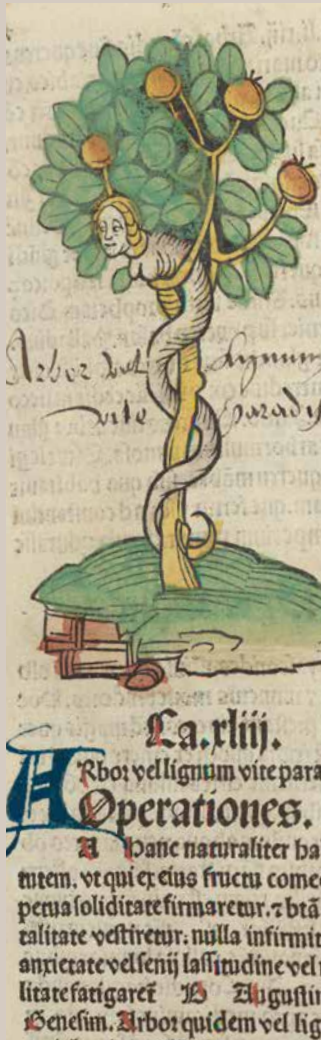 Arbor vel lignum
vite paradis
Ca.xliij.
ARbor vel lignum vite para
Operationes.
A Hanc naturaliter ha
tutem. vt qui ex eius fructu come
petua soliditate firmaretur. ⁊ btā
talitate vestiretur: nulla infirmit
anxietate vel senij lassitudine vel
litate fatigaret̄ B Augustin
Genesim. Arbor quidem vel lig